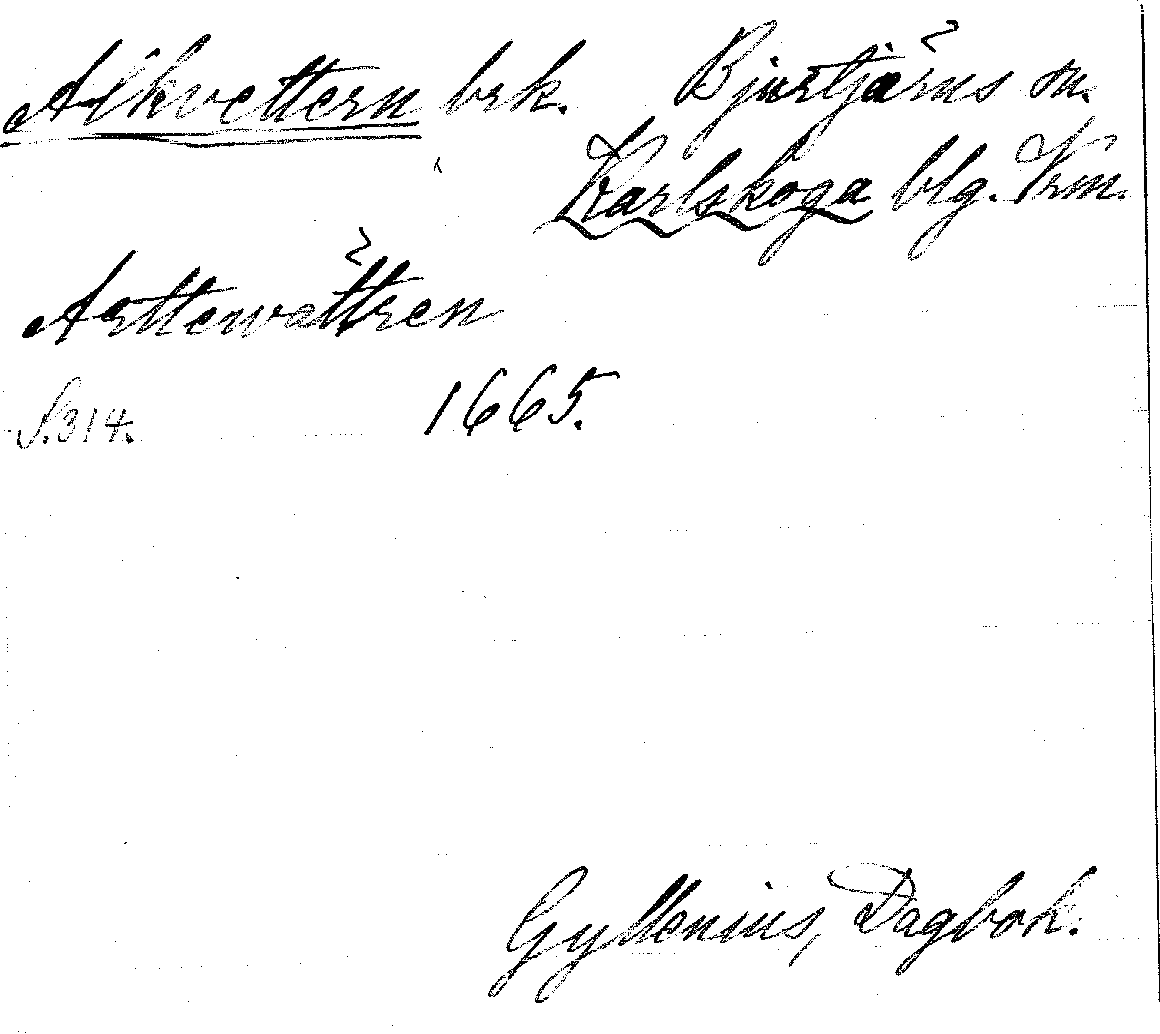 Alkvettern brk. Bjurtjärns sn.
Karlskoga blg. Vrm.
Arttewättren
S.314. 1665.
Gyllenius, Dagbok.